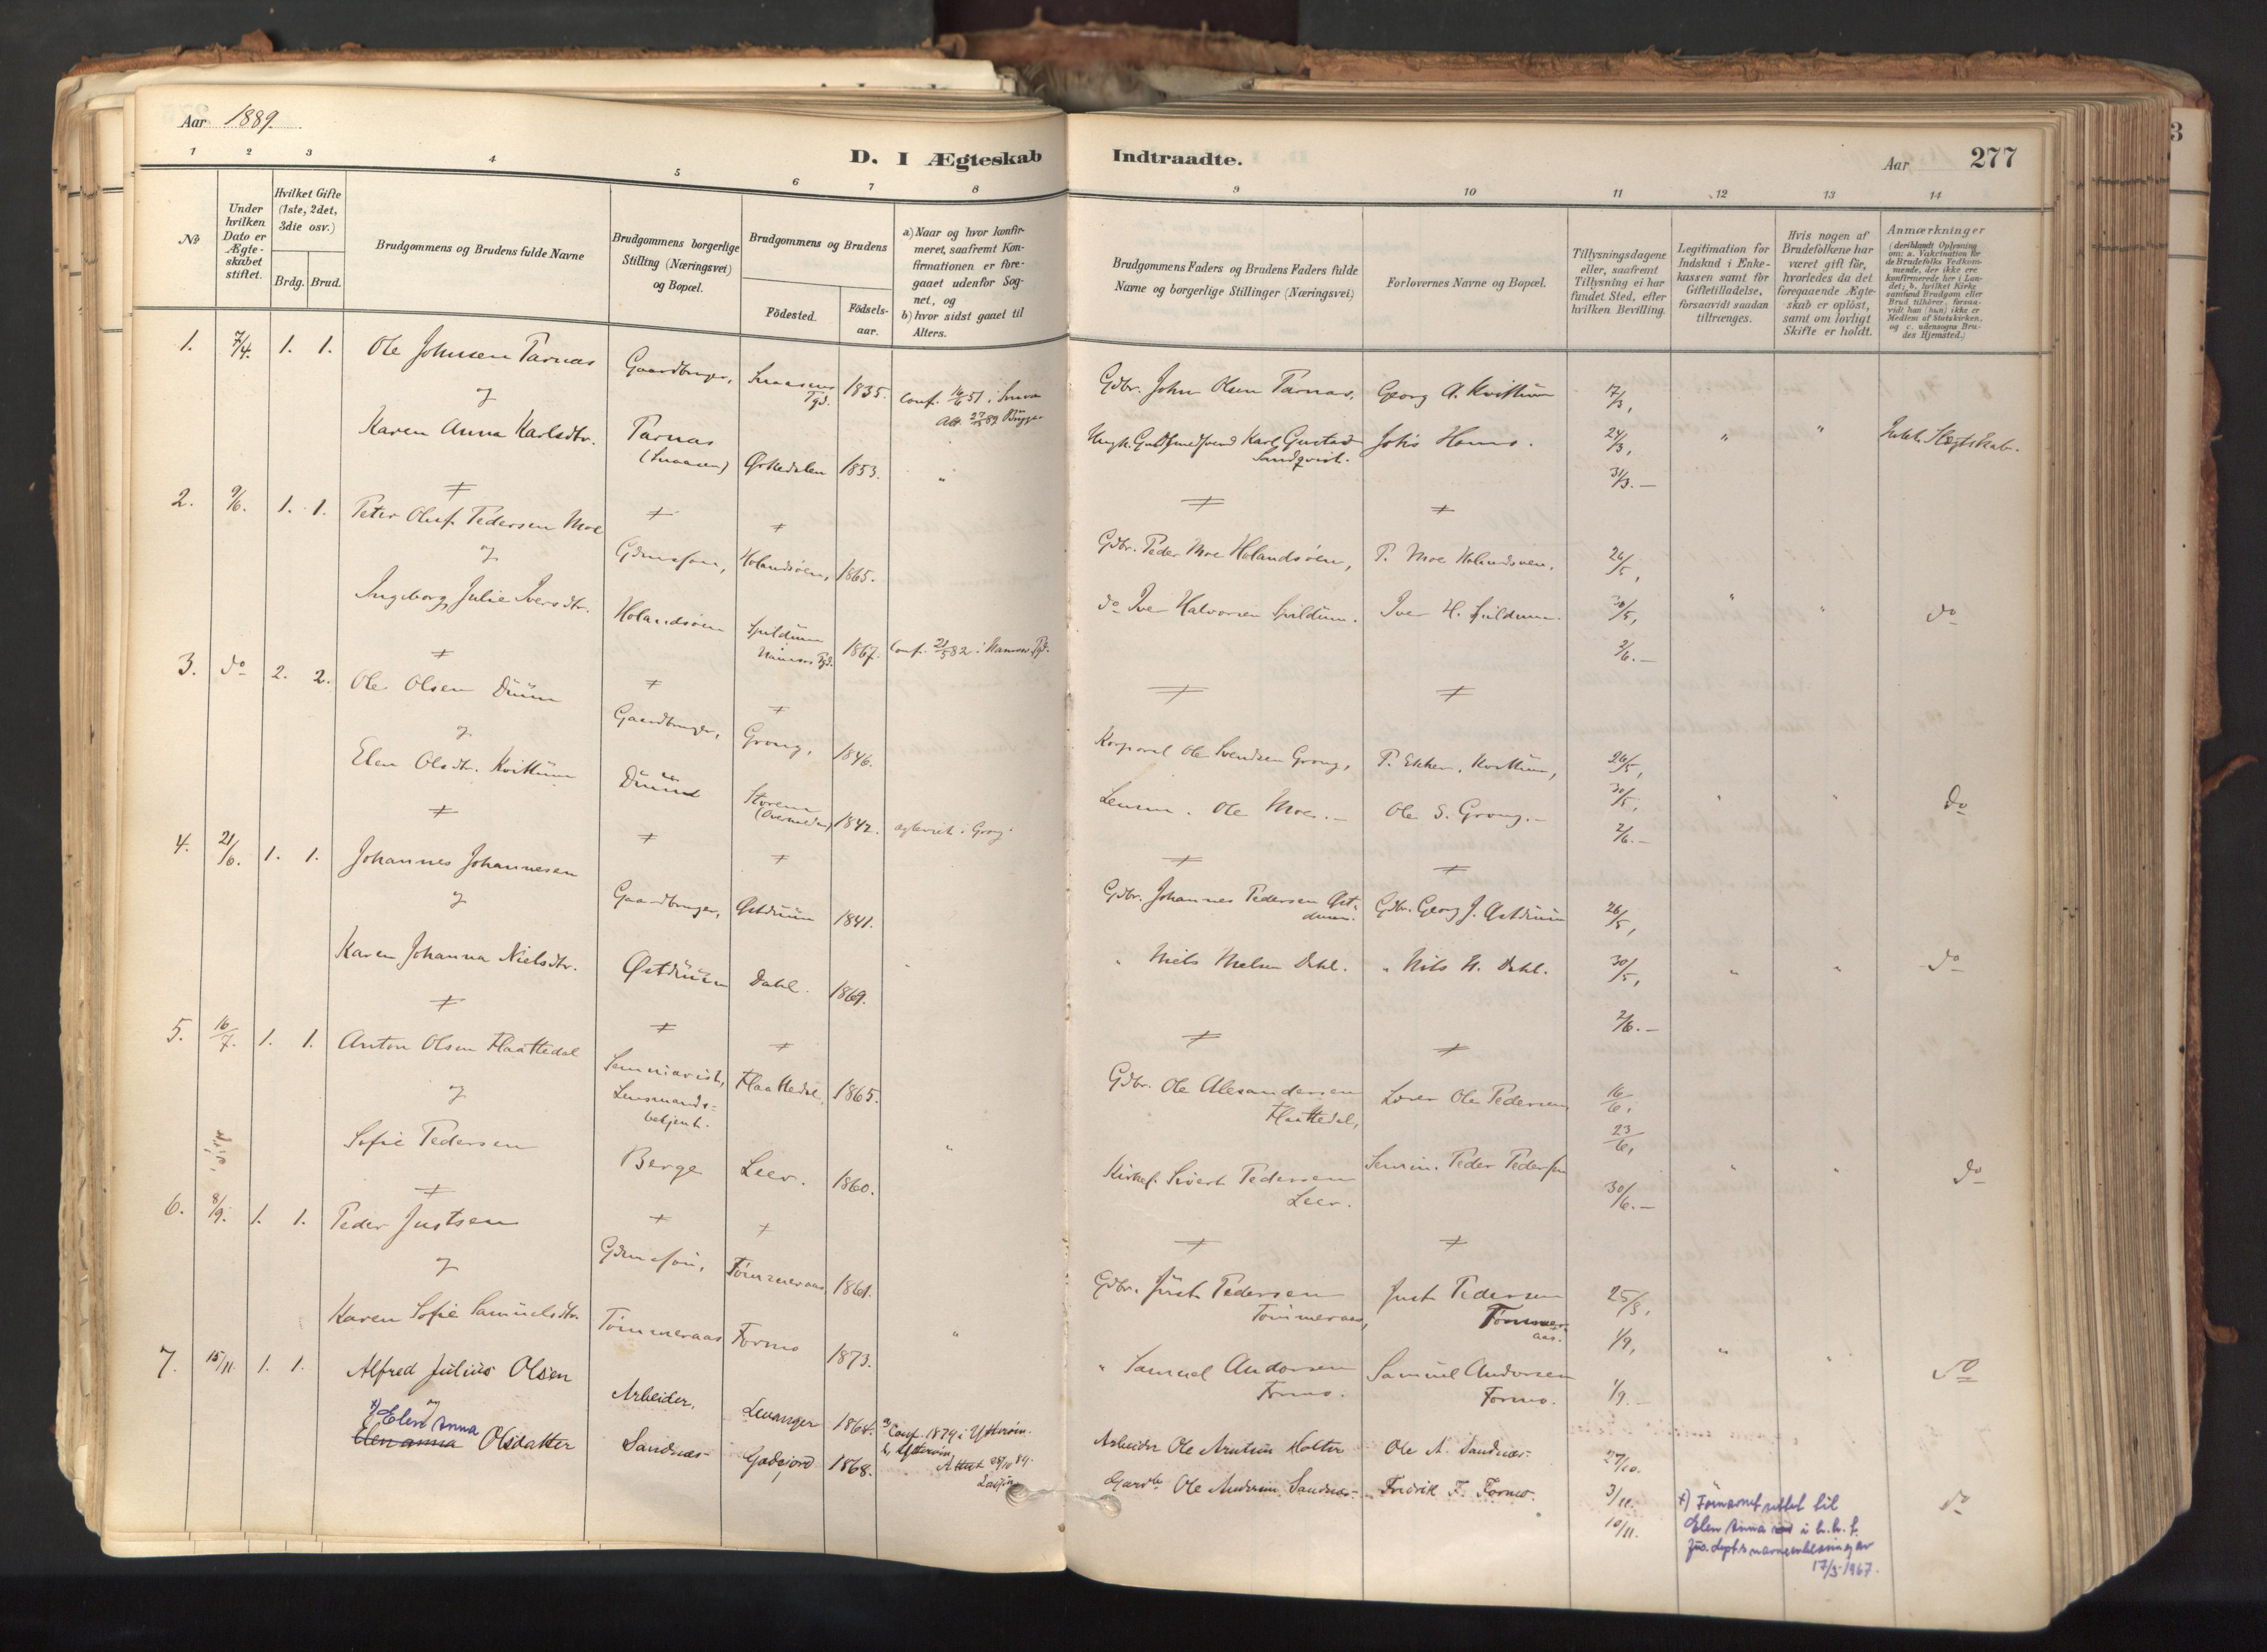 Aar 1889.
D. I Ægteskab
Indtraadte.
Aar
277
1 2 3 4 5 6 7 8 9 10 11 12 13 14
No
Under hvilken Dato er Ægteskabet stiftet.
Hvilket Gifte (1ste, 2det, 3die osv.)
Brdg. Brud.
Brudgommens og Brudens fulde Navne
Brudgommens borgerlige Stilling (Næringsvei) og Bopæl.
Brudgommens og Brudens
Födested.
Födsels-aar.
a) Naar og hvor konfirmeret, saafremt Konfirmationen er foregaaet udenfor Sognet, og
b) hvor sidst gaaet til Alters.
Brudgommens Faders og Brudens Faders fulde Navne og borgerlige Stillinger (Næringsvei)
Forlovernes Navne og Bopæl.
Tillysningsdagene eller, saafremt Tillysning ei har fundet Sted, efter hvilken Bevilling.
Legitimation for Indskud i Enkekassen samt for Giftetilladelse, forsaavidt saadan tiltrænges.
Hvis nogen af Brudefolkene har været gift för, hvorledes da det foregaaende Ægteskab er oplöst, samt om lovligt Skifte er holdt.
Anmærkninger
(deriblandt Oplysning om: a. Vakcination for de Brudefolks Vedkommende, der ikke ere konfirmerede her i Landet; b. hvilket Kirkesamfund Brudgom eller Brud tilhörer, forsaavidt han (hun) ikke er Medlem af Statskirken, og c. udensogns Brudes Hjemsted.)
1. 7/4. 1. 1. Ole Johnsen Parnas
Gaardbruger, 1835.
Gdbr. John Olsen Parnas. Georg A. Kvittum 17/3,
og
Karen Anna Karlsdtr. Parnas (Snaasen) Ørkedalen 1853.
Karl Gustad 24/3,
31/3.
2. 9/6. 1. 1. Peter Oluf Pedersen Moe
og
Holandsøen, 1865.
Gdbr. Peder Moe Holandsøen, P. Moe Holandsøen. 26/5,
Ingeborg Julie Iversdtr. Holandsøen Spildum 1867. Conf. 21/5 82 i
do Iver Halvorsen Spildum. Iver H. Spildum. 30/5, do
2/6.
3. do 2. 2. Ole Olsen Duun
og
Gaardbruger, Grong, 1846.
Korporal Ole Svendsen Grong, P. Ekker, Kvittum, 26/5,
Elen Olsdtr. Kvittum Duun 1842.
Ole Moe. Ole S. Grong. 30/5, do
2/6.
4. 21/6. 1. 1. Johannes Johannesen
og
Gaardbruger, Østduun 1841.
Gdbr. Johannes Pedersen Østduun. Gdbr. Georg J. Østduun 26/5,
Karen Johanna Nielsdtr. Østduun Dahl. 1869.
" Niels Nielsen Dahl. " Nils N. Dahl. 30/5, do
2/6.
5. 16/7. 1. 1. Anton Olsen Flaattedal
og
Seminarist, Lensmandsbetjent. Flaattedal, 1865.
Gdbr. Ole Alexandersen Flaattedal, Lærer Ole Pedersen 16/6,
23/6,
Sofie Pedersen Berge Leer. 1860.
Kirkes. Sivert Pedersen Leer. Semin. Peder Pedersen 30/6. do
6. 8/9. 1. 1. Peder Justsen
og
Tömmeraas 1861.
Gdbr. Just Pedersen Tömmeraas, Just Pedersen Tömmeraas. 25/8,
Karen Sofie Samuelsdtr. Tömmeraas Formo 1873.
" Samuel Andersen Formo. Samuel Andersen Formo. 1/9, do
7. 15/11. 1. 1. Alfred Julius Olsen
og
Arbeider, Levanger 1864. a) Conf. 1879 i Ytterøen.
Arbeider Ole Arntsen Holter Ole A. Sandnæs 27/10.
x) Elen Anna
Elen anna Olsdatter Sandnæs Gadsjord 1868. b, Ytterøen
Gaardb. Ole Andersen Sandnæs Fredrik F. Formo. 3/11. do
10/11.
x) Fornavnet rettet til
Elen Anna i h.h.t.
Jus.dept.s navneendring av
17/3-1967.